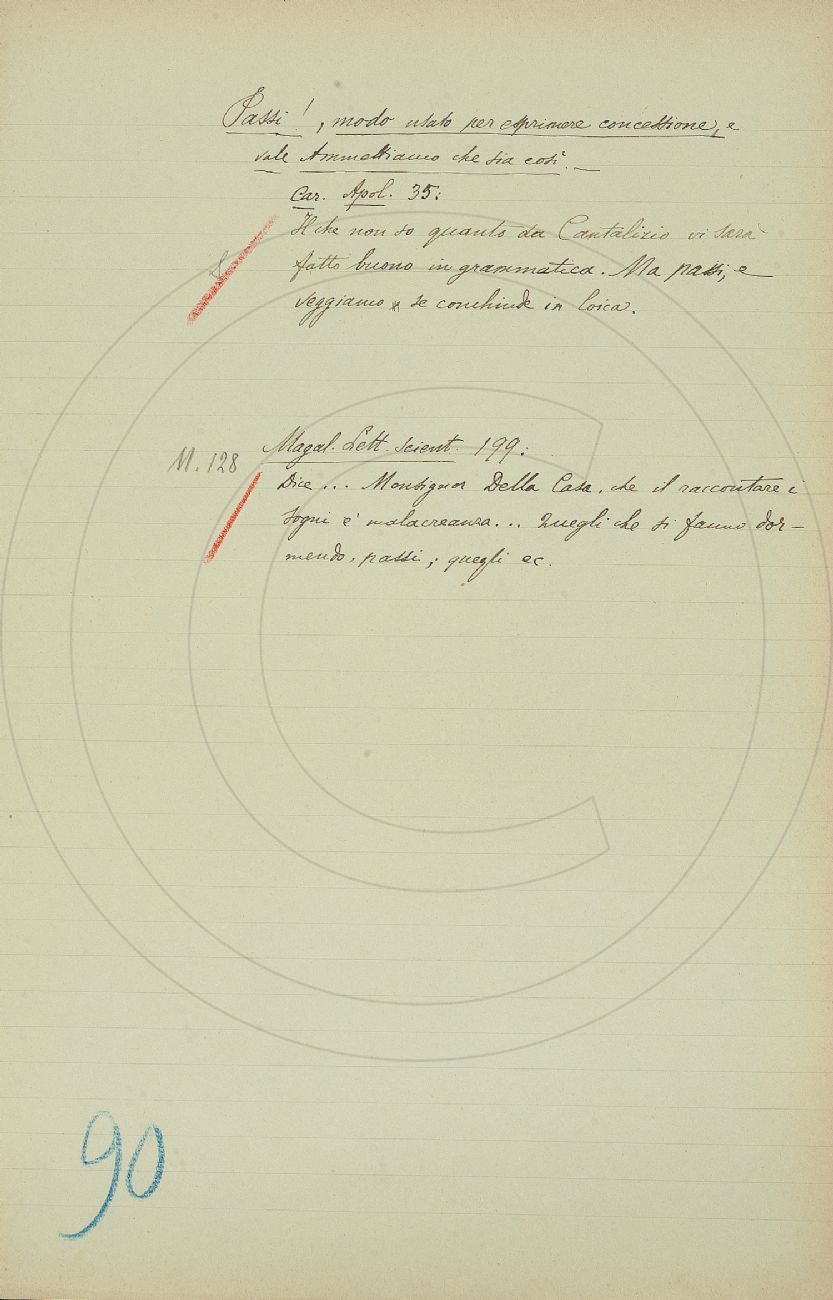 Passi!, modo usato per esprimere concessione, e
vale Ammettiamo che sia così. —
Car. Apol. 35:
Il che non so quanto da Cantalizio vi sarà
fatto buono in grammatica. Ma passi, e
veggiamo se conchiude in loica.
M. 128
Magal. Lett. scient. 199:
Dice ... Monsignor Della Casa, che il raccontare i
sogni è malacreanza... Quegli che si fanno dor-
mendo, passi; quegli ec.
90